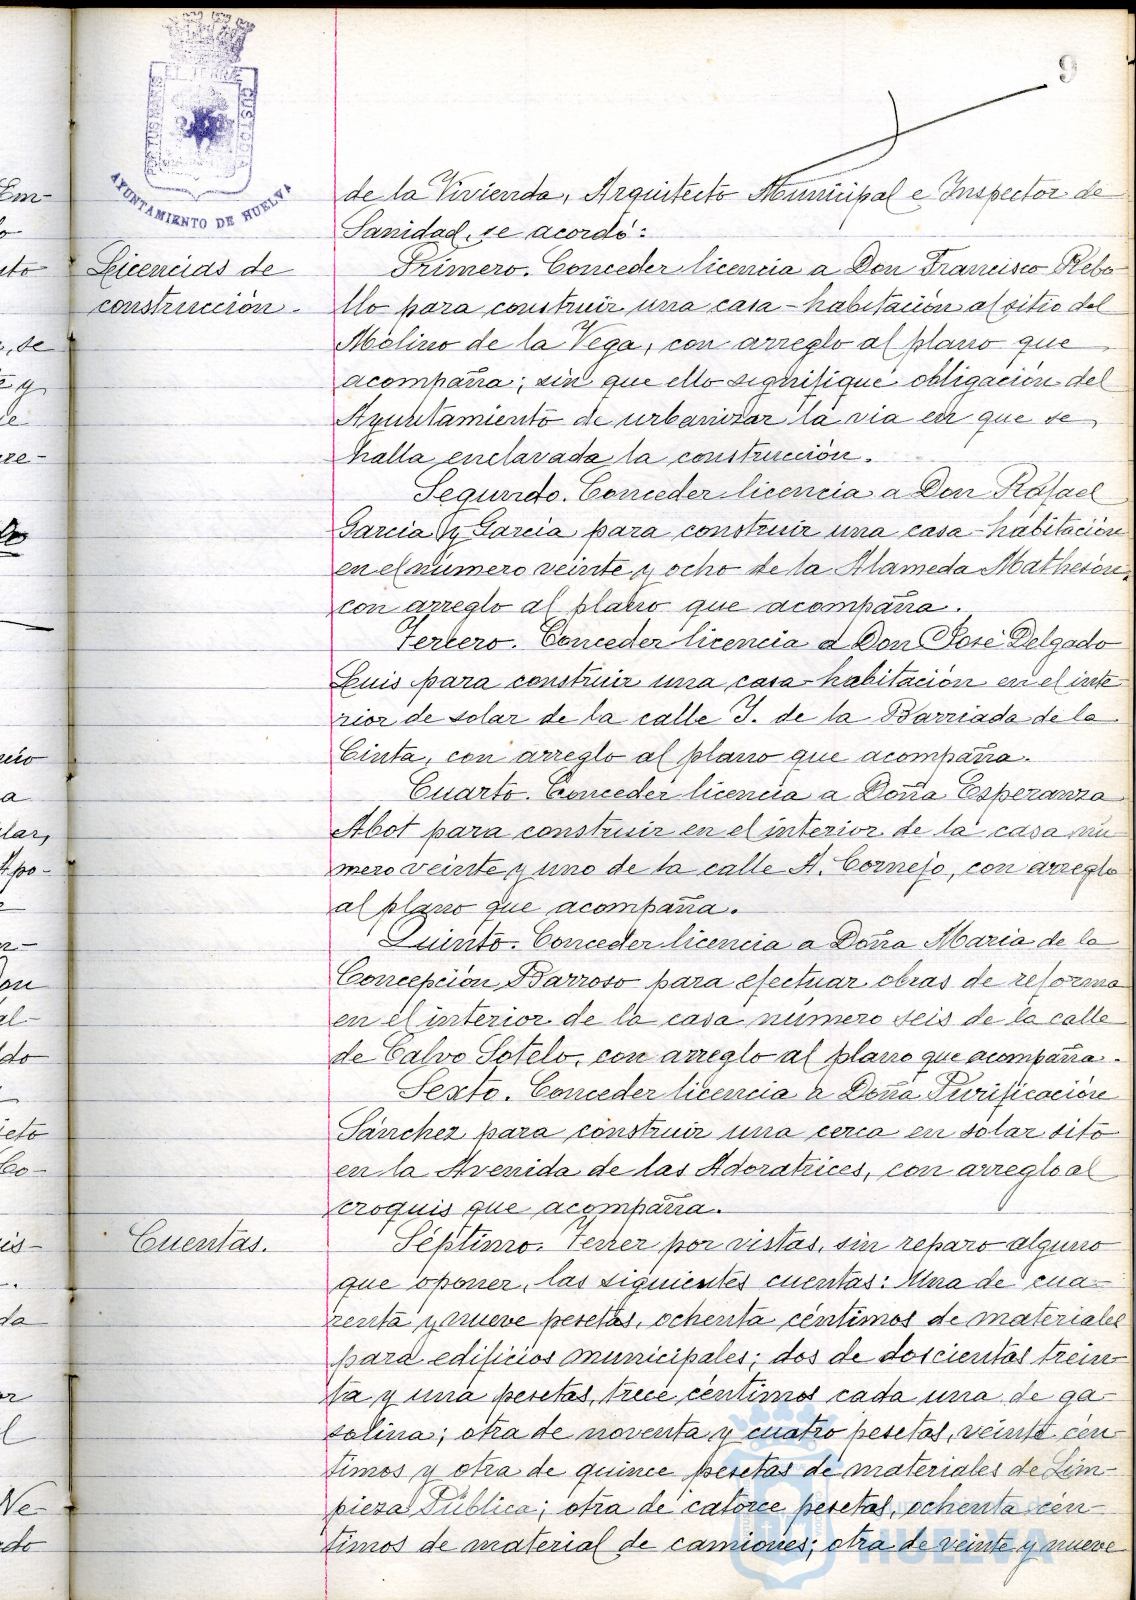 9
PORTUS MARIS ET TERRAE CUSTODIA
AYUNTAMIENTO DE HUELVA
de la Vivienda, Arquitecto Municipal e Inspector de
Sanidad, se acordó:
Licencias de
construcción.
Primero. Conceder licencia a Don Francisco Rebo-
llo para construir una casa-habitación al sitio del
Molino de la Vega, con arreglo al plano que
acompaña; sin que ello signifique obligación del
Ayuntamiento de urbanizar la via en que se
halla enclavada la construcción.
Segundo. Conceder licencia a Don Rafael
Garcia y Garcia para construir una casa-habitación
en el número veinte y ocho de la Alameda Mathesón,
con arreglo al plano que acompaña.
Tercero. Conceder licencia a Don José Delgado
Luis para construir una casa-habitación en el inte
rior de solar de la calle J. de la Barriada de la
Cinta, con arreglo al plano que acompaña.
Cuarto. Conceder licencia a Doña Esperanza
Abot para construir en el interior de la casa nu
mero veinte y uno de la calle A. Cornejo, con arreglo
al plano que acompaña.
Quinto. Conceder licencia a Doña Maria de la
Concepción Barroso para efectuar obras de reforma
en el interior de la casa número seis de la calle
de Calvo Sotelo, con arreglo al plano que acompaña.
Sexto. Conceder licencia a Doña Purificación
Sánchez para construir una cerca en solar sito
en la Avenida de las Adoratrices, con arreglo al
croquis que acompaña.
Cuentas.
Séptimo. Tener por vistas, sin reparo alguno
que oponer, las siguientes cuentas: Una de cua-
renta y nueve pesetas, ochenta céntimos de materiales
para edificios municipales; dos de doscientas trein-
ta y una pesetas, trece céntimos cada una de ga-
solina; otra de noventa y cuatro pesetas, veinte cén-
timos y otra de quince pesetas de materiales de Lim-
pieza Pública; otra de catorce pesetas, ochenta cén-
timos de material de camiones; otra de veinte y nueve
HUELVA